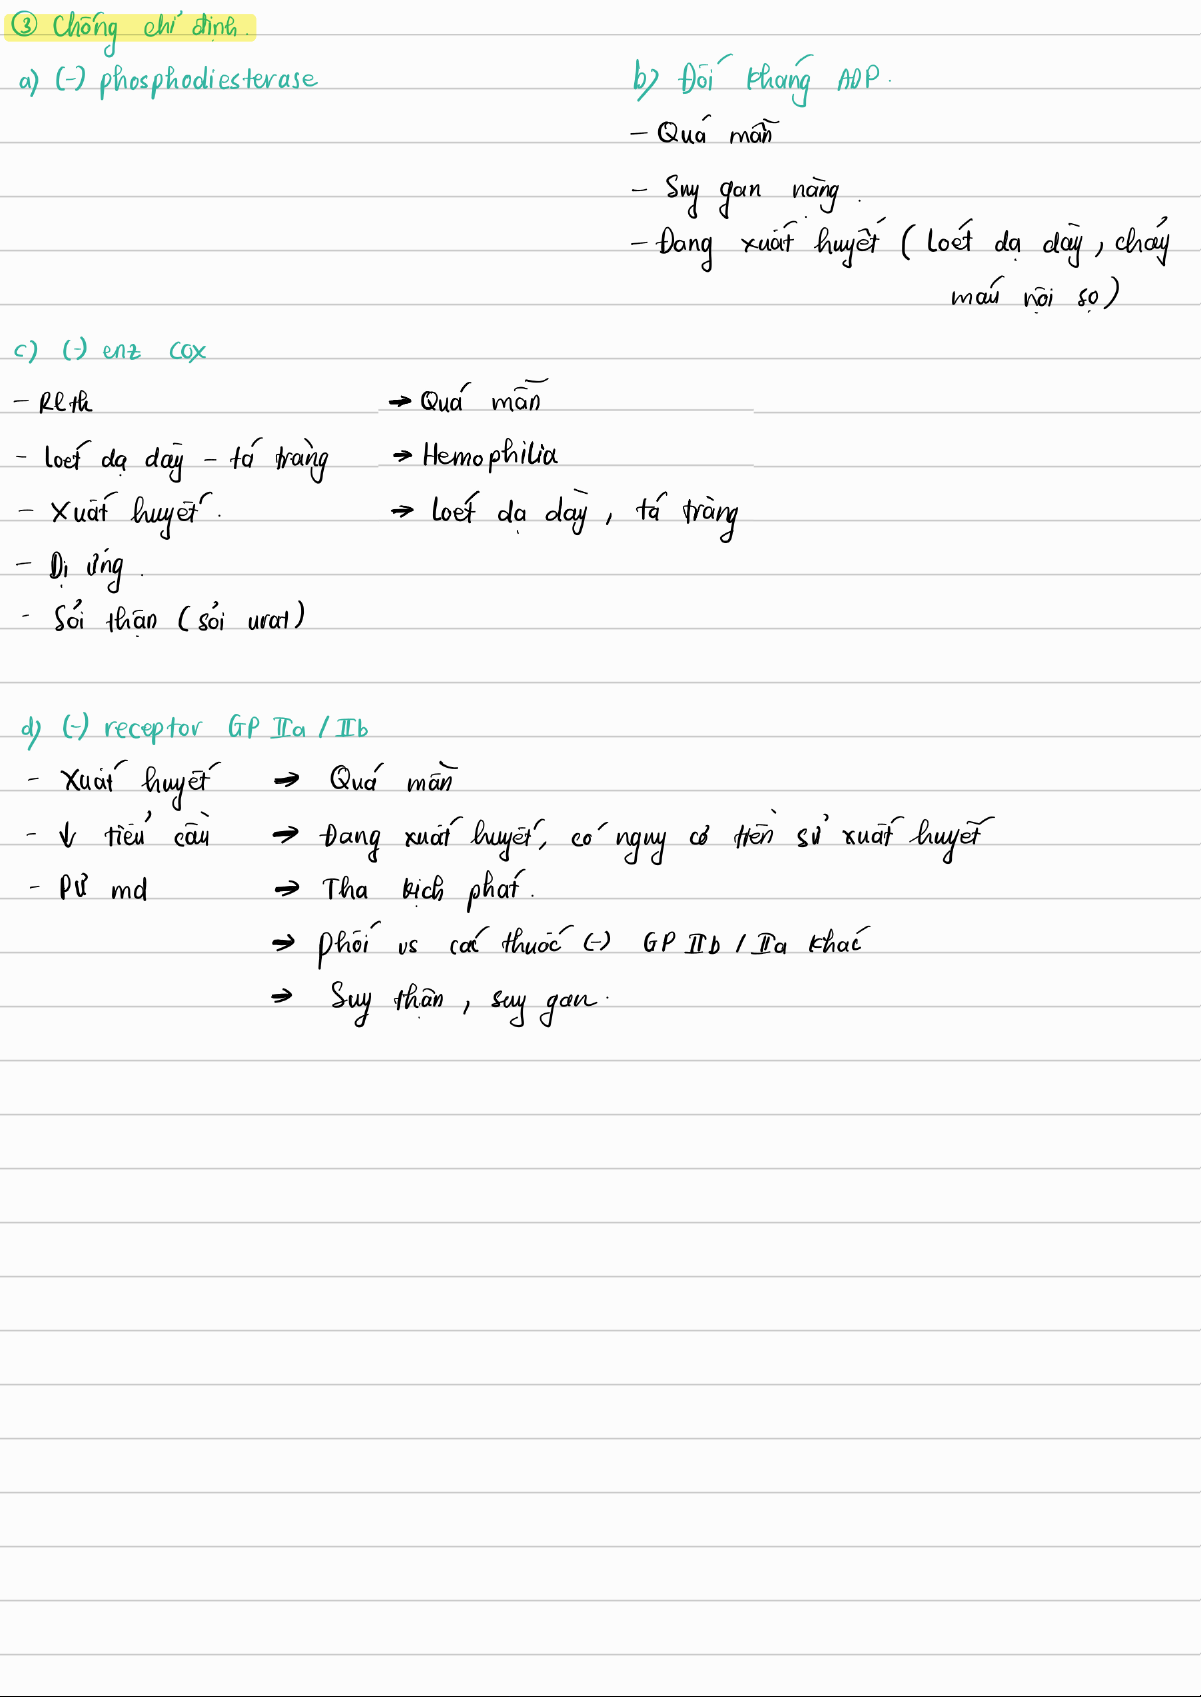 ③ Chống chỉ định.
a) (-) phosphodiesterase
b) Đối kháng ADP.
- Quá mẫn
- Suy gan nặng.
- Đang xuất huyết (loét dạ dày, chảy
máu nội sọ)
c) (-) enz COX
- RLth
- loét dạ dày - tá tràng
- Xuất huyết.
- Dị ứng.
- Sỏi thận (sỏi urat)
→ Quá mẫn
→ Hemophilia
→ loét dạ dày, tá tràng
d) (-) receptor GP IIa / IIb
- Xuất huyết → Quá mẫn
- ↓ tiểu cầu → Đang xuất huyết, có nguy cơ tiền sử xuất huyết
- PƯ md → Tha kịch phát.
→ phối vs các thuốc (-) GP IIb / IIa khác
→ Suy thận, suy gan.